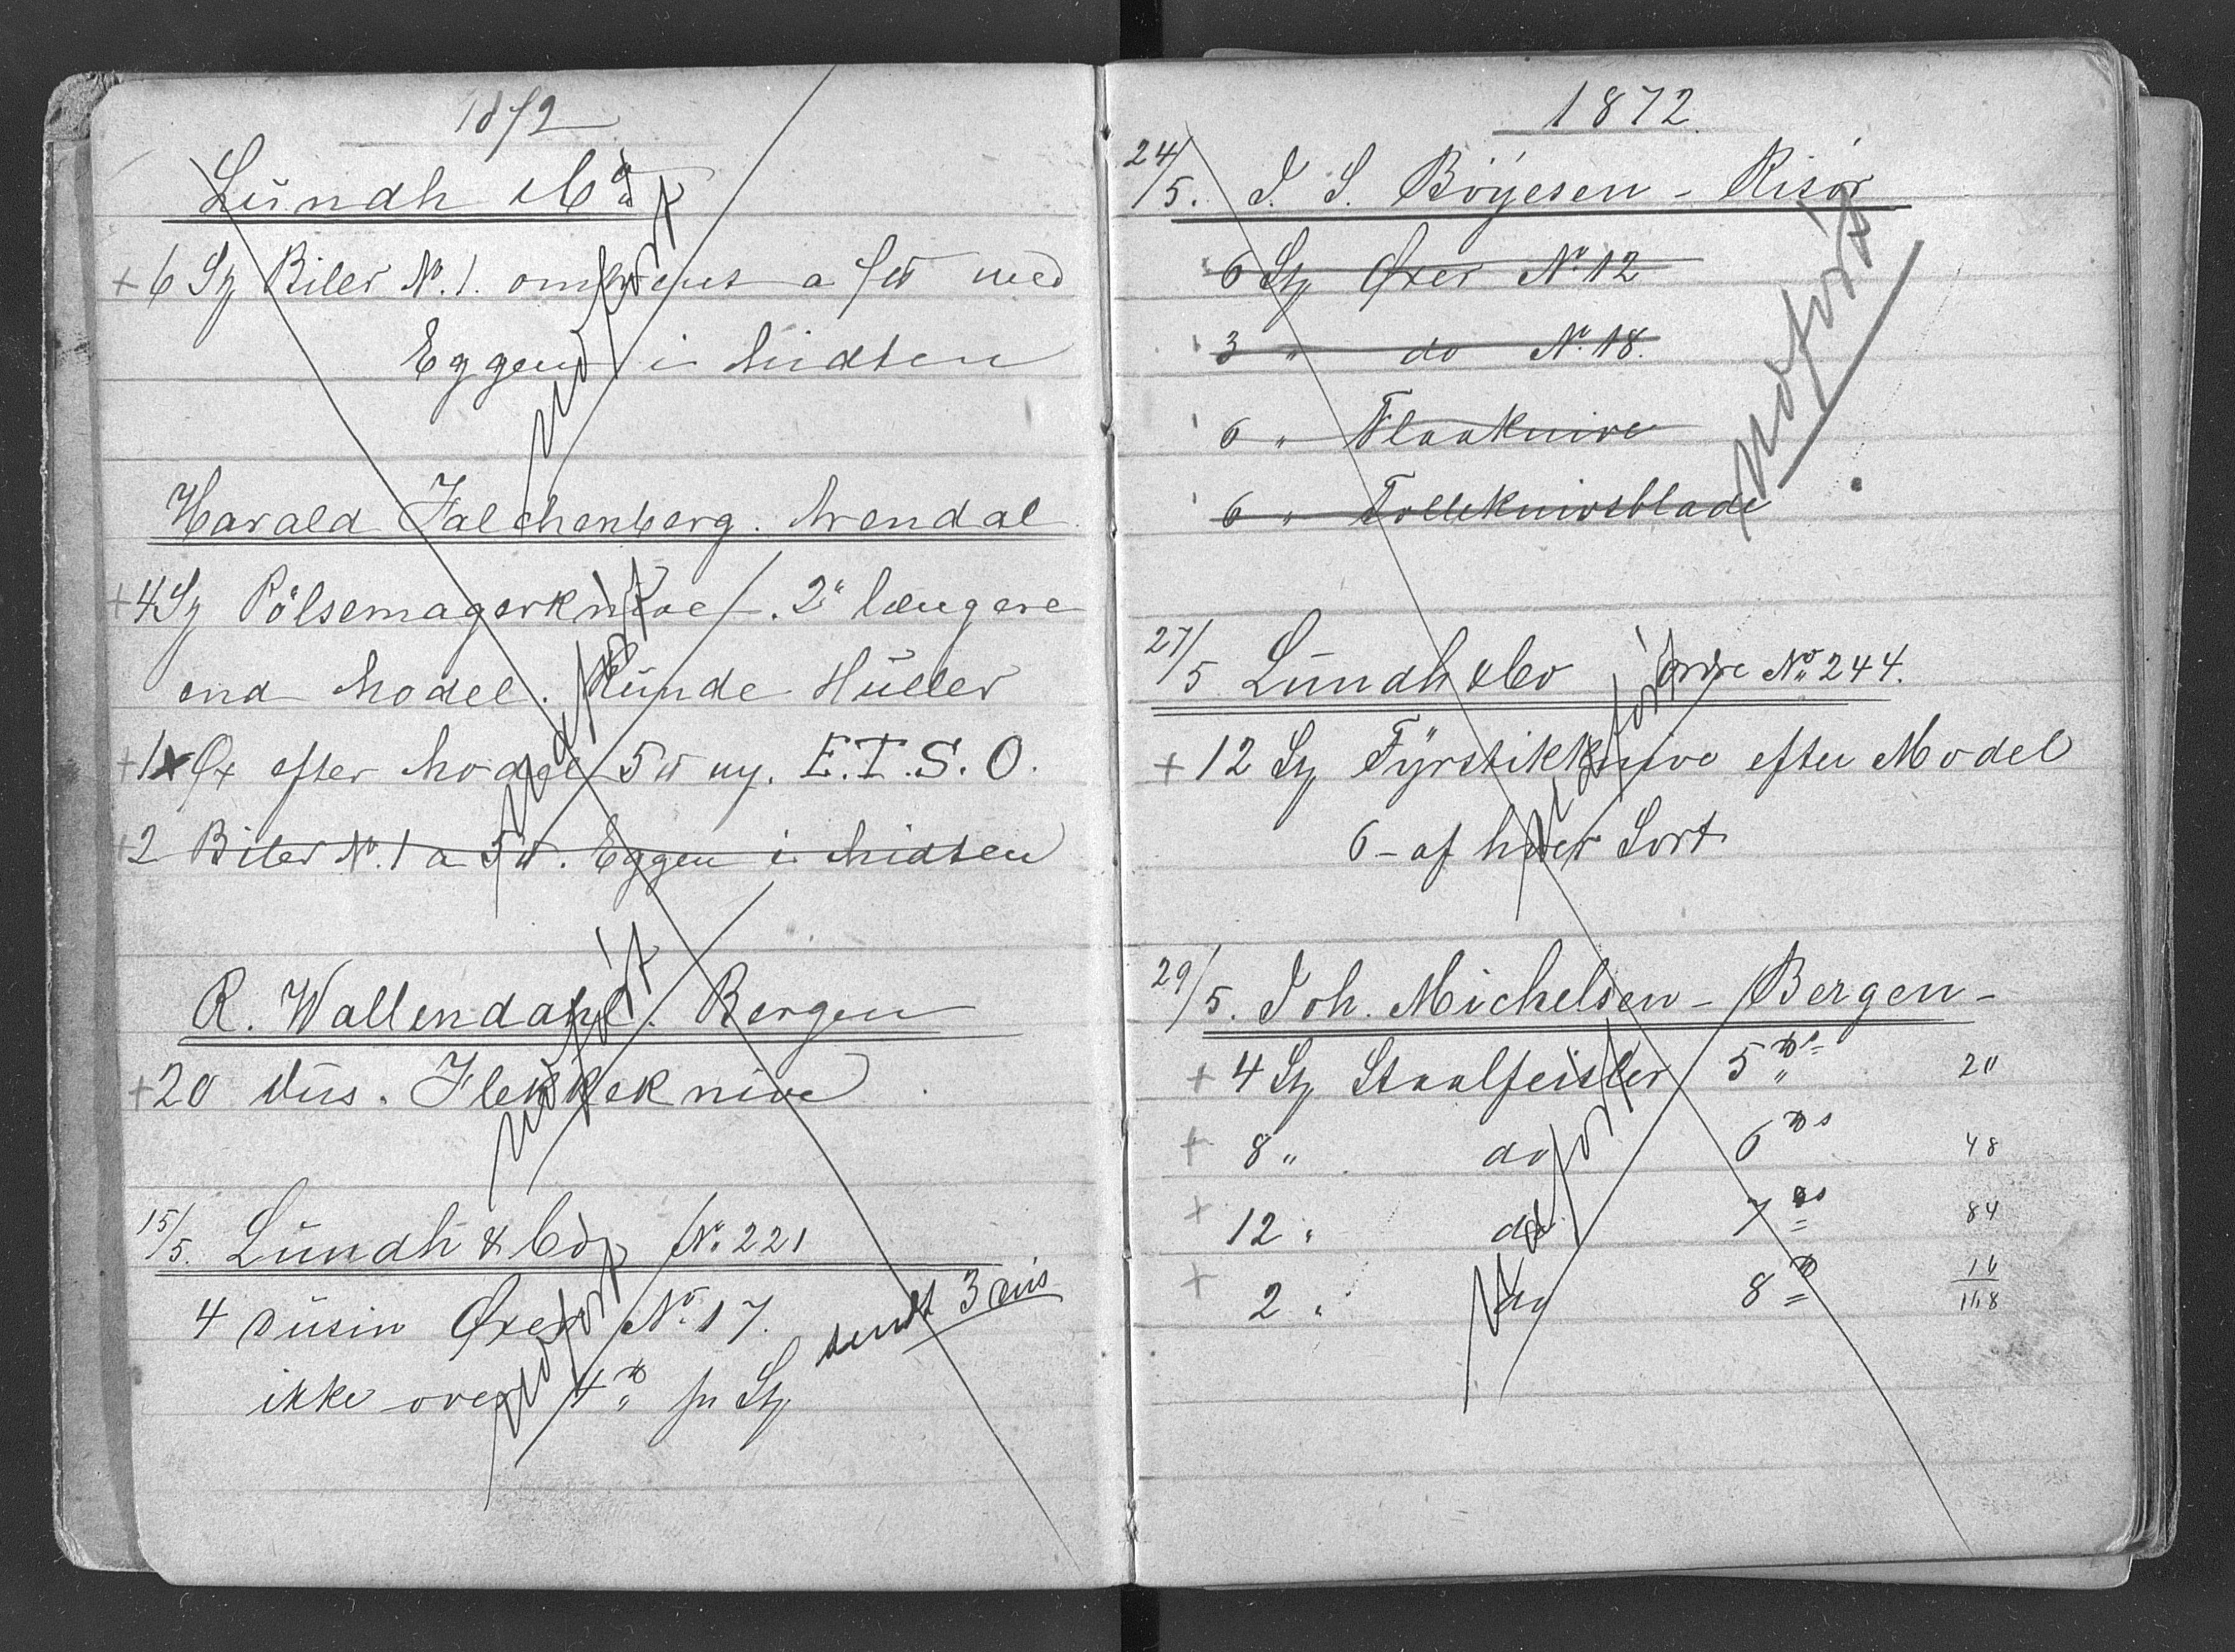 1872
Lundh & Co
+ 6 St Biler No. 1. omtrent a 5 ℔ med
Eggen i Midten
udført
Harald Falchenberg. Arendal
+ 4 St Pølsemagerknive. 2" længere
end Model. Runde Huller
+ 1 Øx efter Model 5 ℔ ny. E.T.S.O.
+ 2 Biler No. 1 a 5 ℔. Eggen i Midten
udført
R. Wallendahl. Bergen
+ 20 Dus. Flekkeknive
udført
15/5. Lundh & Co No. 221
4 Dusin Øxer No. 17.
sendt 3 Dus
ikke over 4 ℔ pr St
udført
1872.
24/5. J. S. Böyesen - Risör
6 St Øxer No. 12
3 " do No. 18.
6 " Flaaknive
6 " Tolleknivsblade
udført
27/5 Lundh & Co Ordre No. 244.
+ 12 St Fyrstikknive efter Model
6 - af hver Sort
udført
29/5. Joh. Michelsen - Bergen -
+ 4 St Staalfeisler 5 ℔s 20
+ 8 " do 6 ℔s 48
+ 12 " do 7 ℔s 84
+ 2 " do 8 ℔ 16
168
udført